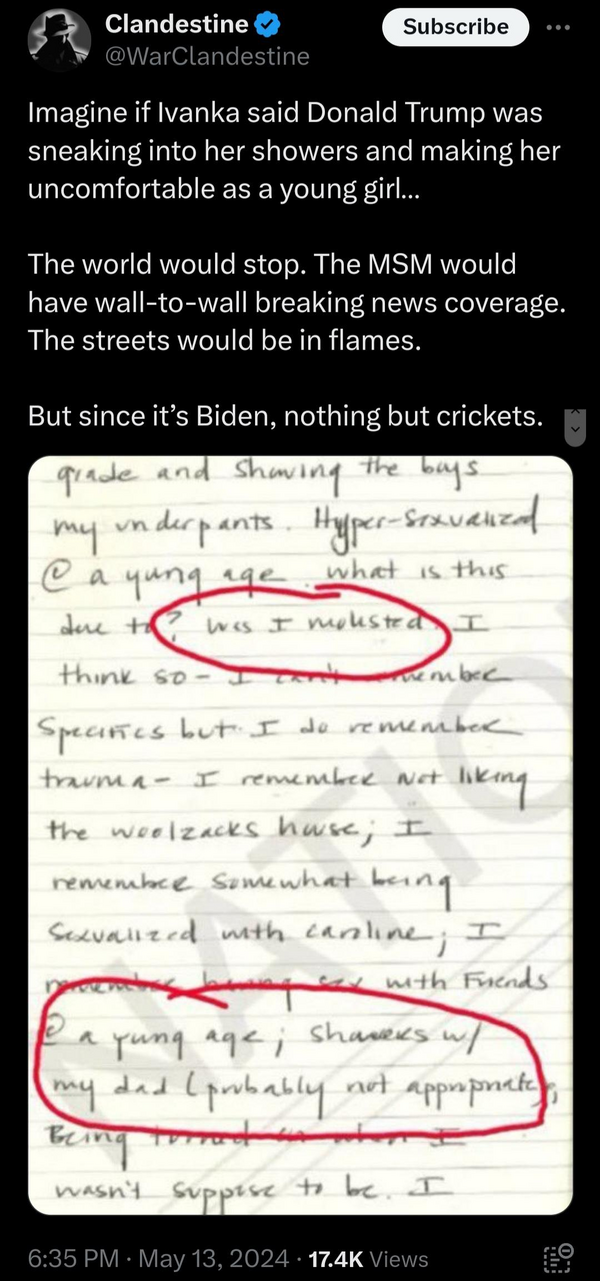 Clandestine
Subscribe
@WarClandestine
Imagine if Ivanka said Donald Trump was
sneaking into her showers and making her
uncomfortable as a young girl...
The world would stop. The MSM would
have wall-to-wall breaking news coverage.
The streets would be in flames.
But since it's Biden, nothing but crickets.
grade and showing the boys
my underpants. Hyper-sexualized
@ a yung age. what is this
due to? Was I molested. I
think so - I can't remember
specifics but I do remember
trauma - I remember not liking
the woolzacks house; I
remember somewhat being
sexualized with caroline; I
remember having sex with friends
@ a yung age; showers w/
my dad (probably not appropriate),
Being turned on when I
wasn't suppose to be. I
NATIO
6:35 PM · May 13, 2024 · 17.4K Views